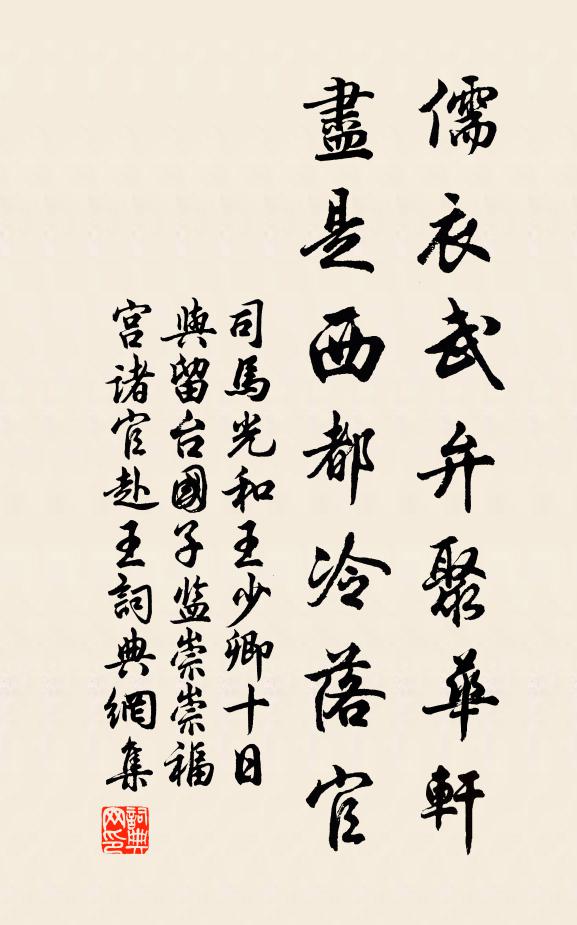 儒衣武弁聚華軒
盡是西都冷落官
司馬光和王少卿十日
與留台國子监崇崇福
宫诸官赴王詞典網集
詞典网印